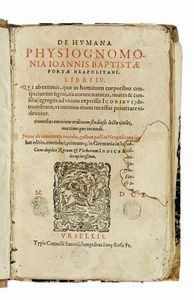 DE HVMANA
PHYSIOGNOMO
NIA IOANNIS BAPTISTÆ
PORTÆ NEAPOLITANI.
LIBRI IV.
QVI ab extimis, quæ in hominum corporibus con-
spiciuntur signis, ita eorum naturas, mores & con-
silia (egregiis ad viuum expressis ICONIBVS) de-
monstrant, vt intimos animi recessus penetrare vi-
deantur.
Omnibus omnium ordinum studiosis lectu vtiles,
maximeque iucundi.
Nunc ab innumeris mendis, quibus passim Neapolitana sca-
tebat editio, emendati, primumq; in Germania in lucem editi.
Cum duplici Rerum & Verborum INDICE
locupletissimo.
M DC I
VRSELLIS,
Typis Cornelii Sutorii, sumptibus Ionæ Rosæ Fr.